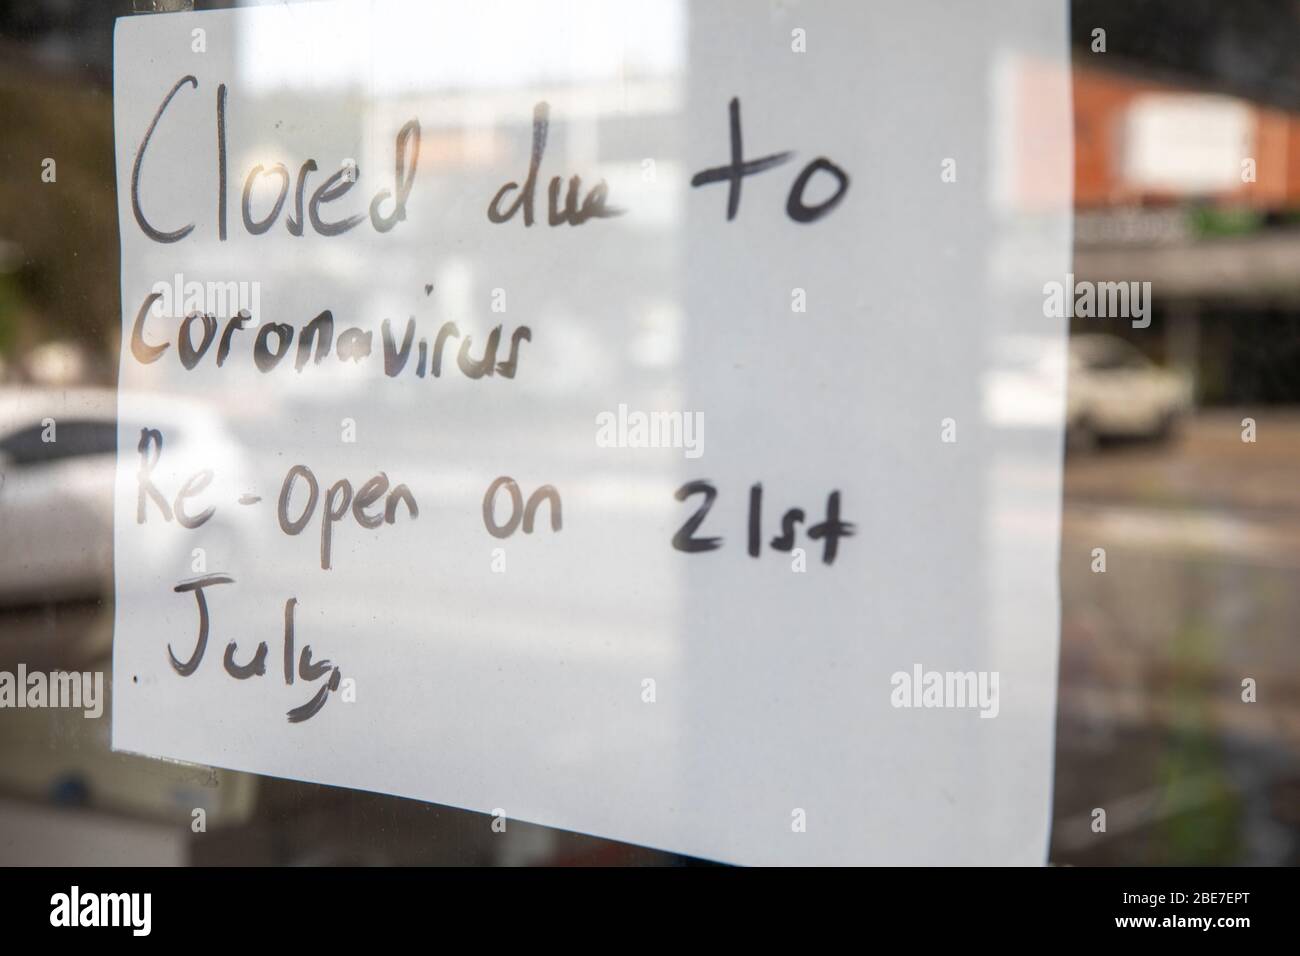 Closed due to
Coronavirus
Re-open on 21st
July
alamy
alamy
alamy
alamy
alamy
alamy
Image ID: 2BE7EPT
www.alamy.com